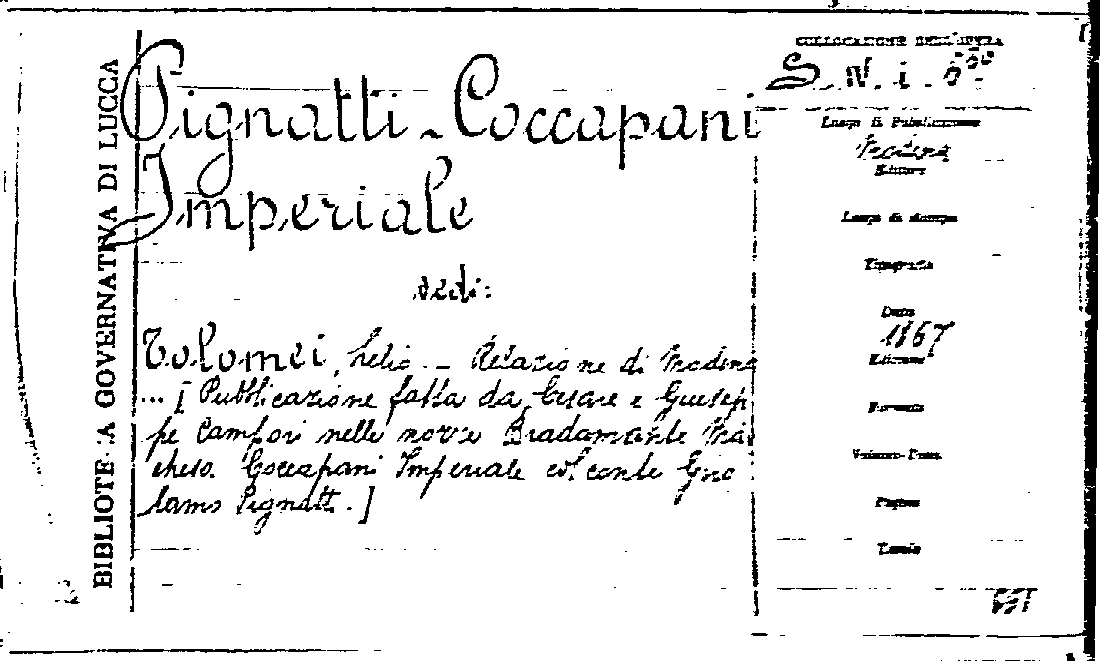 BIBLIOTECA GOVERNATIVA DI LUCCA
Pignatti - Coccapani
Imperiale
vedi:
Tolomei, Lelio. - Relazione di Modena
... [Pubblicazione fatta da Cesare e Giusep
pe Campori nelle nozze Bradamante Mar
chesa Coccapani Imperiale col conte Giro
lamo Pignatti.]
COLLOCAZIONE DELL'OPERA
S. N. i.
Luogo di Pubblicazione
Modena
Editore
Luogo di stampa
Tipografia
Data
1867
Edizione
Formato
Volume-Parte
Pagine
Tavole